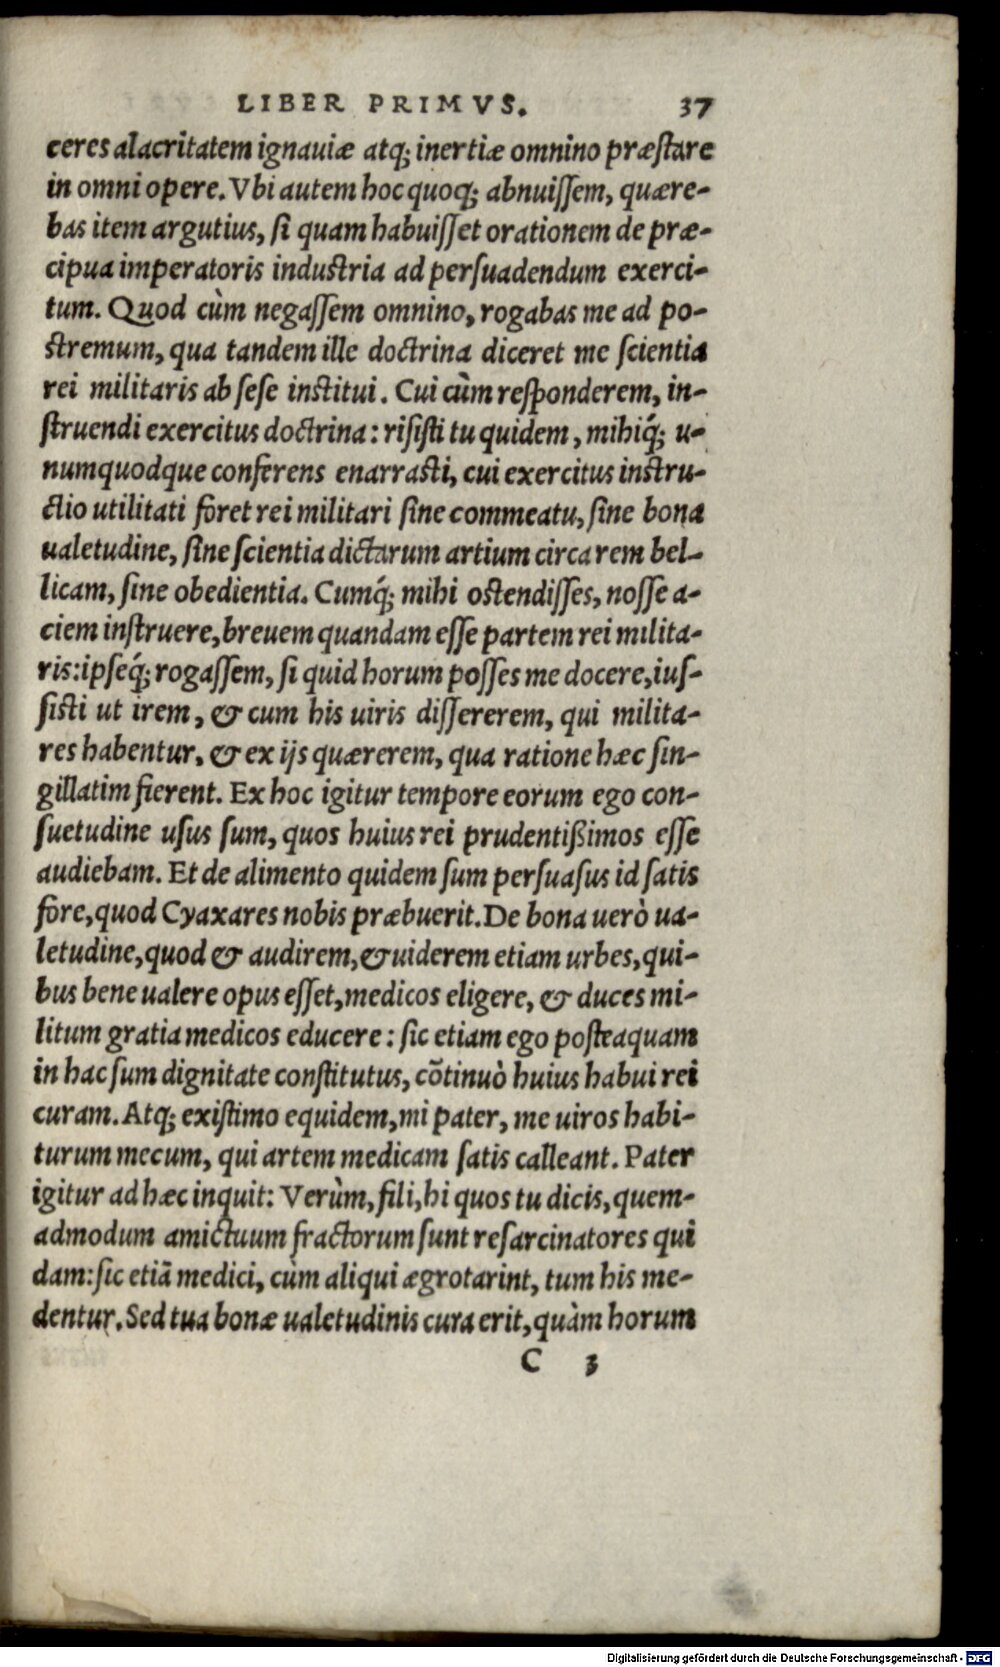 LIBER PRIMVS. 37
ceres alacritatem ignauiæ atq; inertiæ omnino præstare
in omni opere. Vbi autem hoc quoq; abnuissem, quære-
bas item argutius, si quam habuisset orationem de præ-
cipua imperatoris industria ad persuadendum exerci-
tum. Quod cùm negassem omnino, rogabas me ad po-
stremum, qua tandem ille doctrina diceret me scientia
rei militaris ab sese institui. Cui cùm responderem, in-
struendi exercitus doctrina: risisti tu quidem, mihiq́; u-
numquodque conferens enarrasti, cui exercitus instru-
ctio utilitati foret rei militari sine commeatu, sine bona
ualetudine, sine scientia dictarum artium circa rem bel-
licam, sine obedientia. Cumq́; mihi ostendisses, nosse a-
ciem instruere, breuem quandam esse partem rei milita-
ris: ipseq́; rogassem, si quid horum posses me docere, ius-
sisti ut irem, & cum his uiris dissererem, qui milita-
res habentur, & ex ijs quærerem, qua ratione hæc sin-
gillatim fierent. Ex hoc igitur tempore eorum ego con-
suetudine usus sum, quos huius rei prudentißimos esse
audiebam. Et de alimento quidem sum persuasus id satis
fore, quod Cyaxares nobis præbuerit. De bona uerò ua-
letudine, quod & audirem, & uiderem etiam urbes, qui-
bus bene ualere opus esset, medicos eligere, & duces mi-
litum gratia medicos educere: sic etiam ego posteaquam
in hac sum dignitate constitutus, cõtinuò huius habui rei
curam. Atq; existimo equidem, mi pater, me uiros habi-
turum mecum, qui artem medicam satis calleant. Pater
igitur ad hæc inquit: Verùm, fili, hi quos tu dicis, quem-
admodum amictuum fractorum sunt resarcinatores qui
dam: sic etiã medici, cùm aliqui ægrotarint, tum his me-
dentur. Sed tua bonæ ualetudinis cura erit, quàm horum
C 3
Digitalisierung gefördert durch die Deutsche Forschungsgemeinschaft - DFG